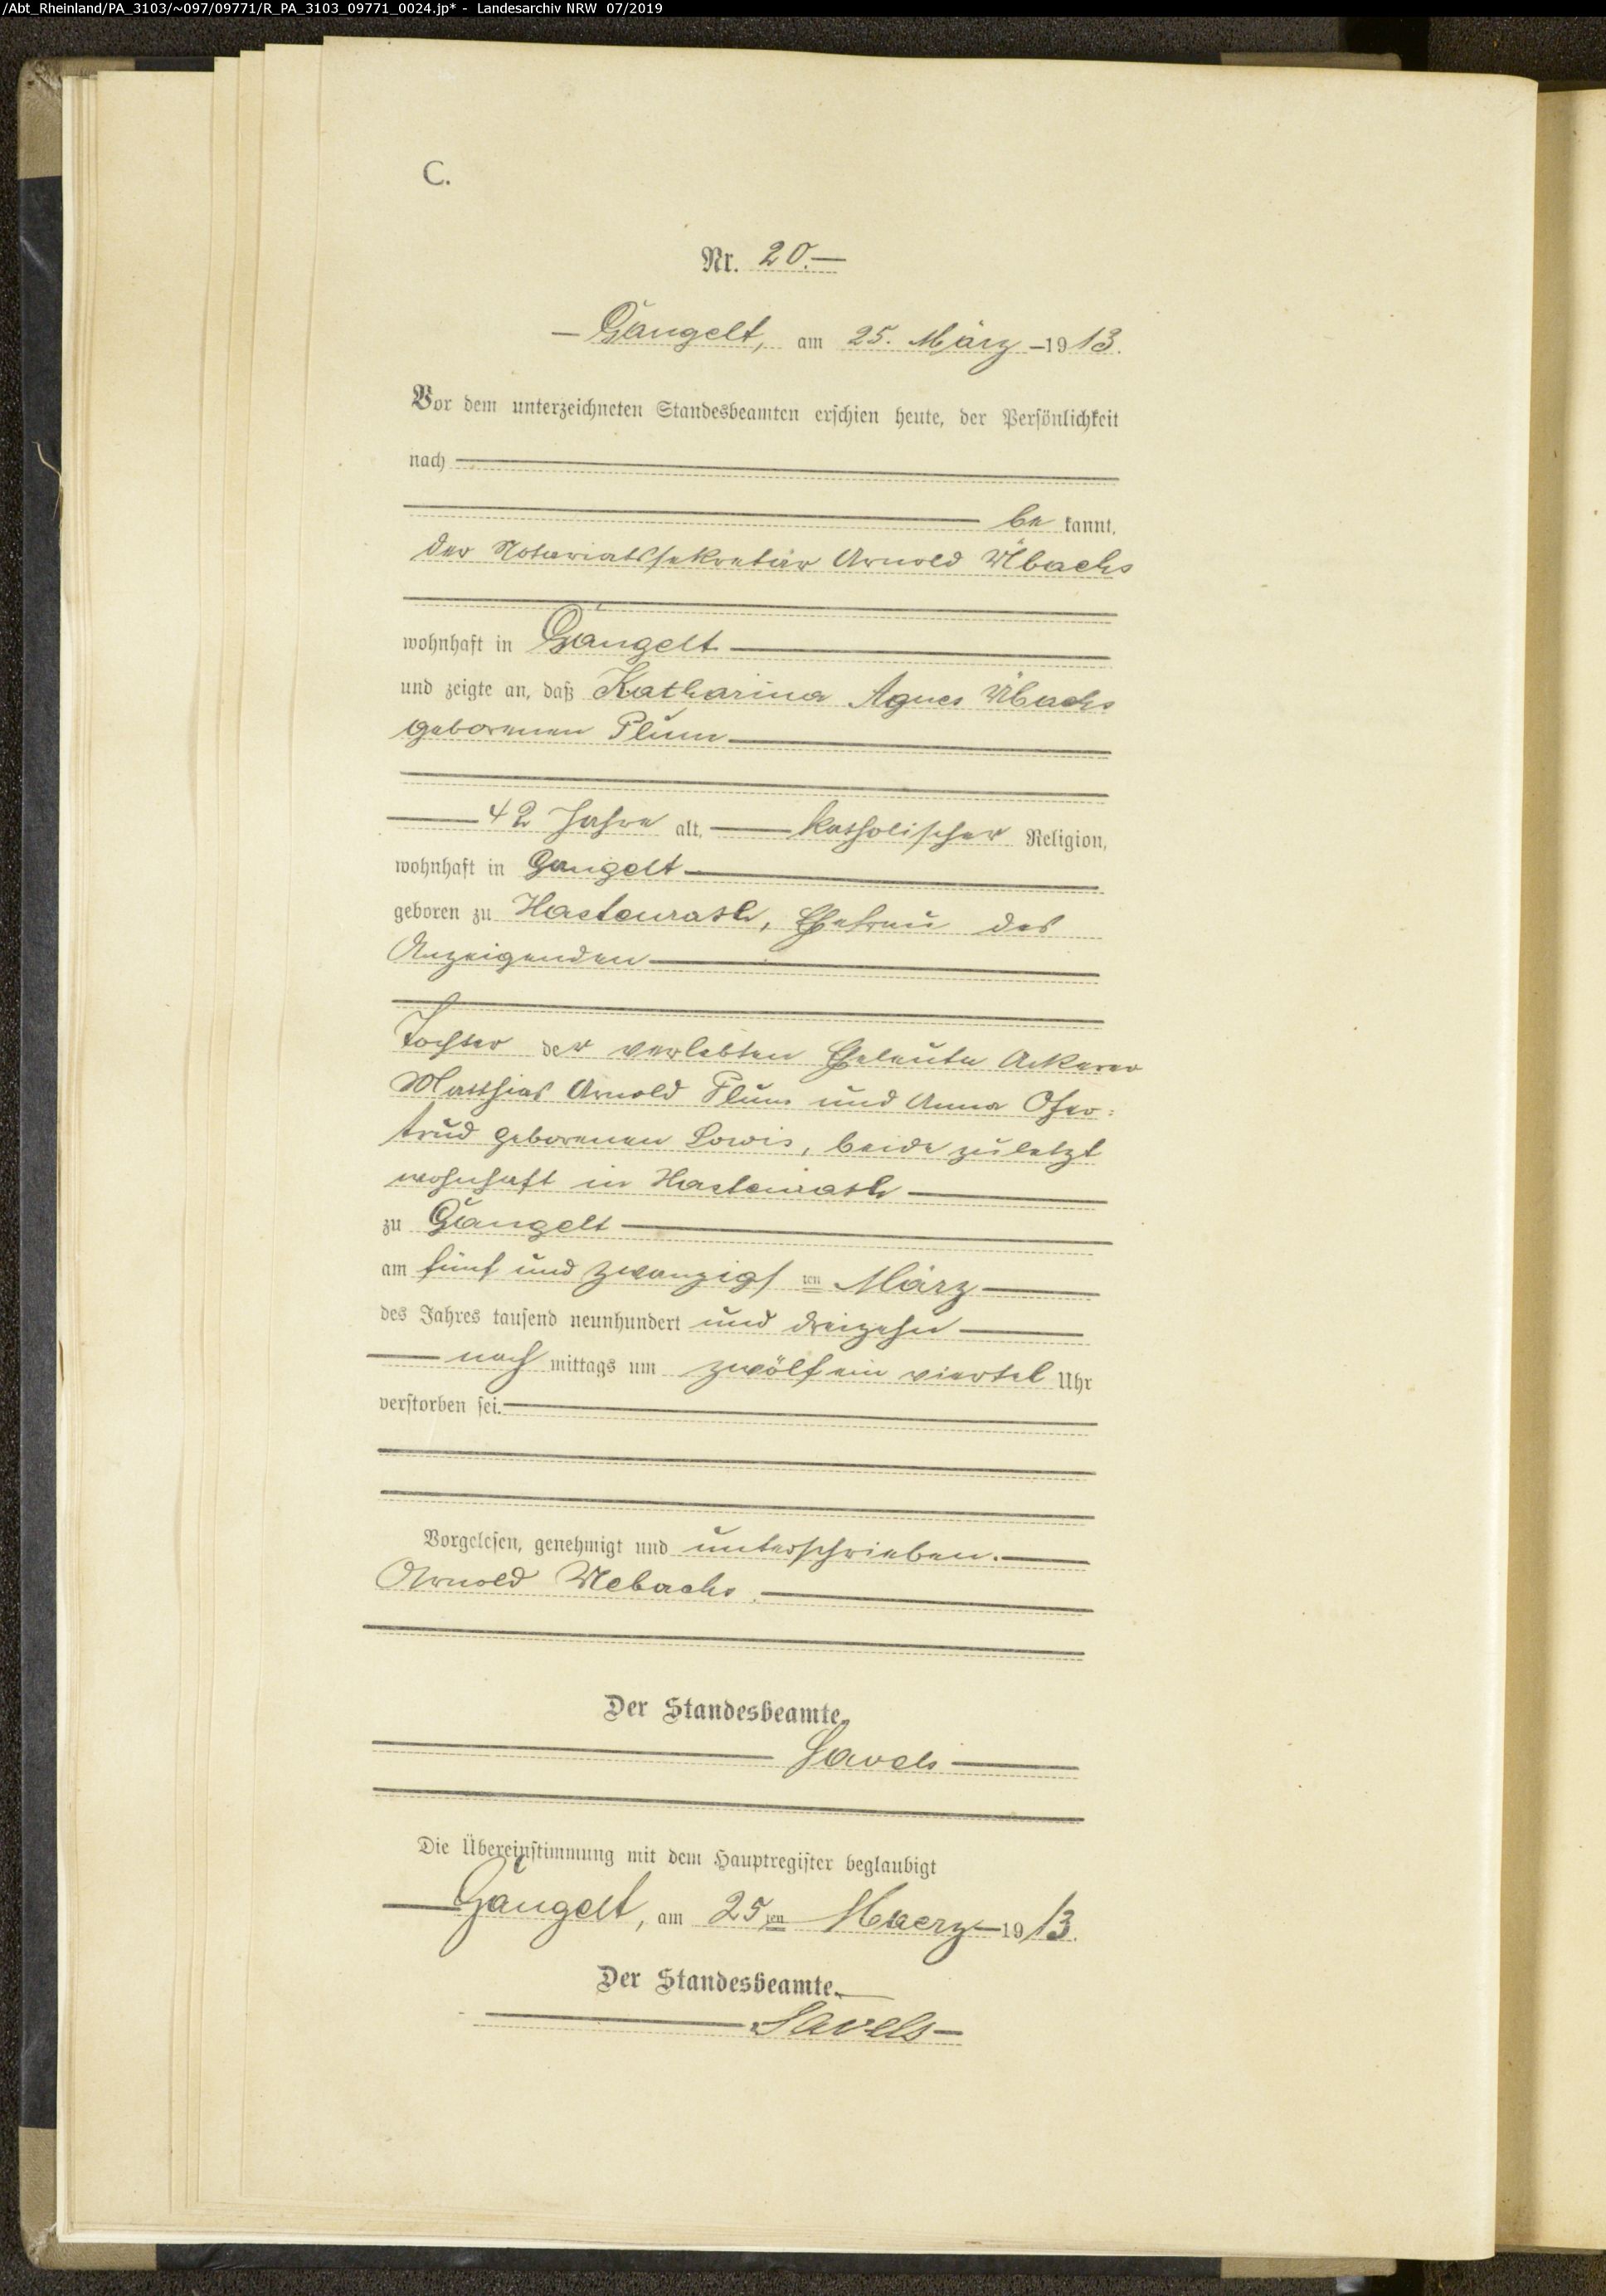 /Abt_Rheinland/PA_3103/~097/09771/R_PA_3103_09771_0024.jp* - Landesarchiv NRW 07/2019
C.
Nr. 20.
Gangelt, am 25. März 1913.
Vor dem unterzeichneten Standesbeamten erschien heute, der Persönlichkeit
nach
be kannt,
der Notariatssekretär Arnold Übachs
wohnhaft in Gangelt
und zeigte an, daß Katharina Agnes Übachs
geborenen Plum
42 Jahre alt, katholischer Religion,
wohnhaft in Gangelt
geboren zu Hastenrath, Ehefrau des
Anzeigenden
Tochter der verlebten Eheleute Ackerer
Matthias Arnold Plum und Anna Ger=
trud geborenen Lowis, beide zuletzt
wohnhaft in Hastenrath
zu Gangelt
am fünf und zwanzigs ten März
des Jahres tausend neunhundert und dreizehn
nach mittags um zwölf ein viertel Uhr
verstorben sei.
Vorgelesen, genehmigt und unterschrieben.
Arnold Uebachs.
Der Standesbeamte.
Savels
Die Übereinstimmung mit dem Hauptregister beglaubigt
Gangelt, am 25 ten Maerz 1913.
Der Standesbeamte.
Savels